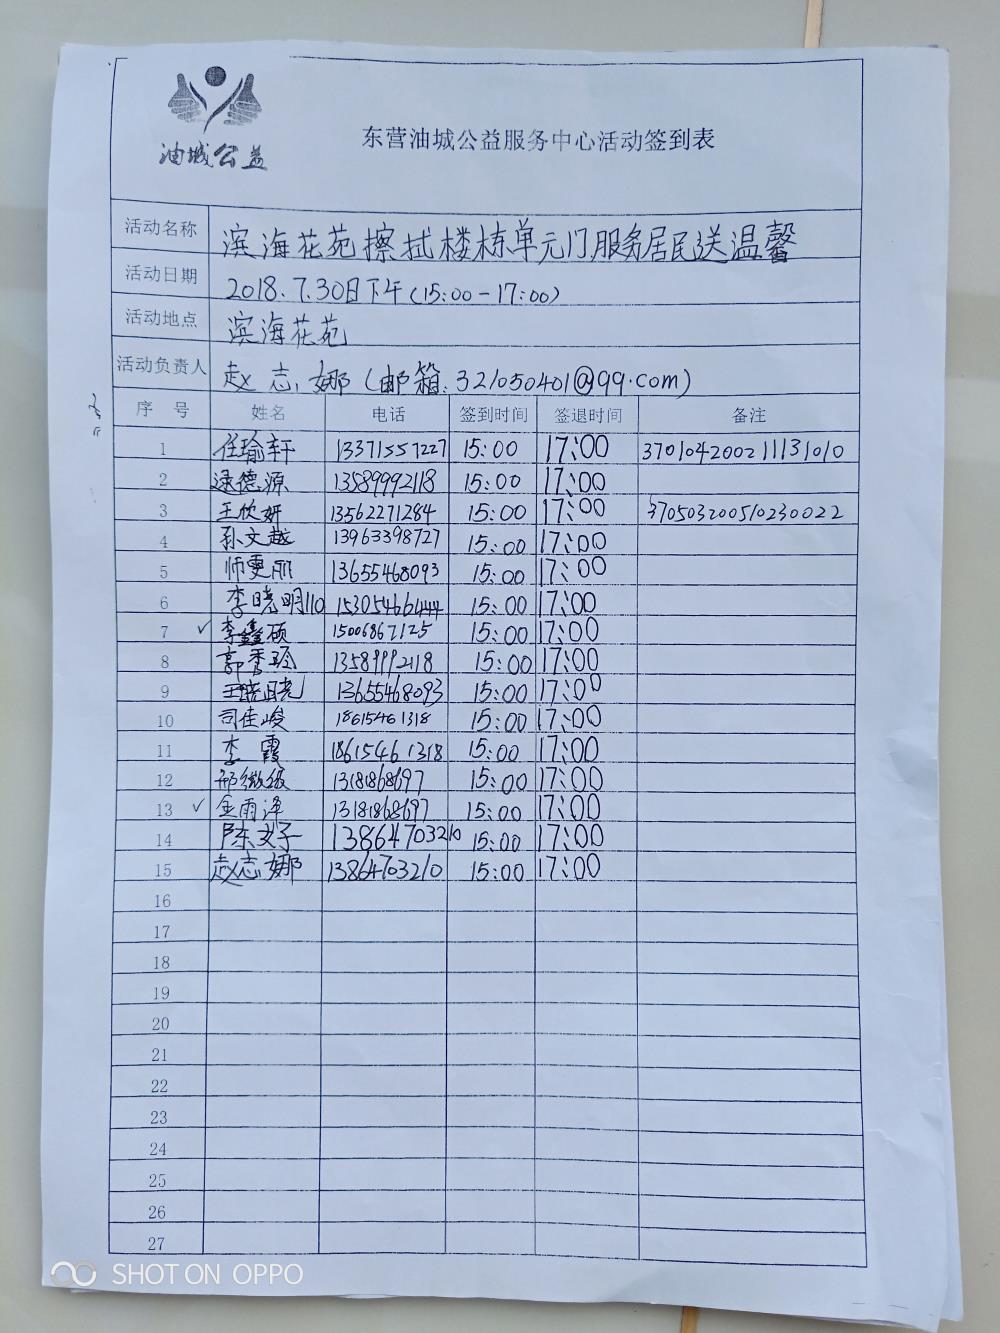 油城公益
东营油城公益服务中心活动签到表
活动名称 滨海花苑擦拭楼栋单元门服务居民送温馨
活动日期 2018.7.30日下午(15:00-17:00)
活动地点 滨海花苑
活动负责人 赵志娜(邮箱:321050401@qq.com)
序号 姓名 电话 签到时间 签退时间 备注
1 任瑜轩 13371557227 15:00 17:00 370104200211131010
2 逯德源 13589992118 15:00 17:00
3 王欣妍 13562271284 15:00 17:00 370503200510230022
4 孙文越 13963398727 15:00 17:00
5 师雯丽 13655468093 15:00 17:00
6 李晓明110 15305466444 15:00 17:00
7 ✓ 李鑫硕 15006867125 15:00 17:00
8 郭秀玲 13589992118 15:00 17:00
9 13655468093 15:00 17:00
10 司佳峻 18615461318 15:00 17:00
11 李霞 18615461318 15:00 17:00
12 邢微级 13181868697 15:00 17:00
13 ✓ 金雨泽 13181868697 15:00 17:00
14 陈文子 13864703210 15:00 17:00
15 赵志娜 13864703210 15:00 17:00
16
17
18
19
20
21
22
23
24
25
26
27
SHOT ON OPPO